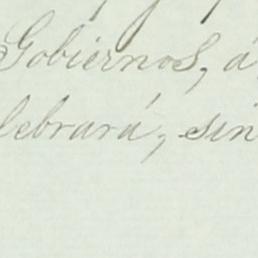 Gobiernos, á
lebrará, sin